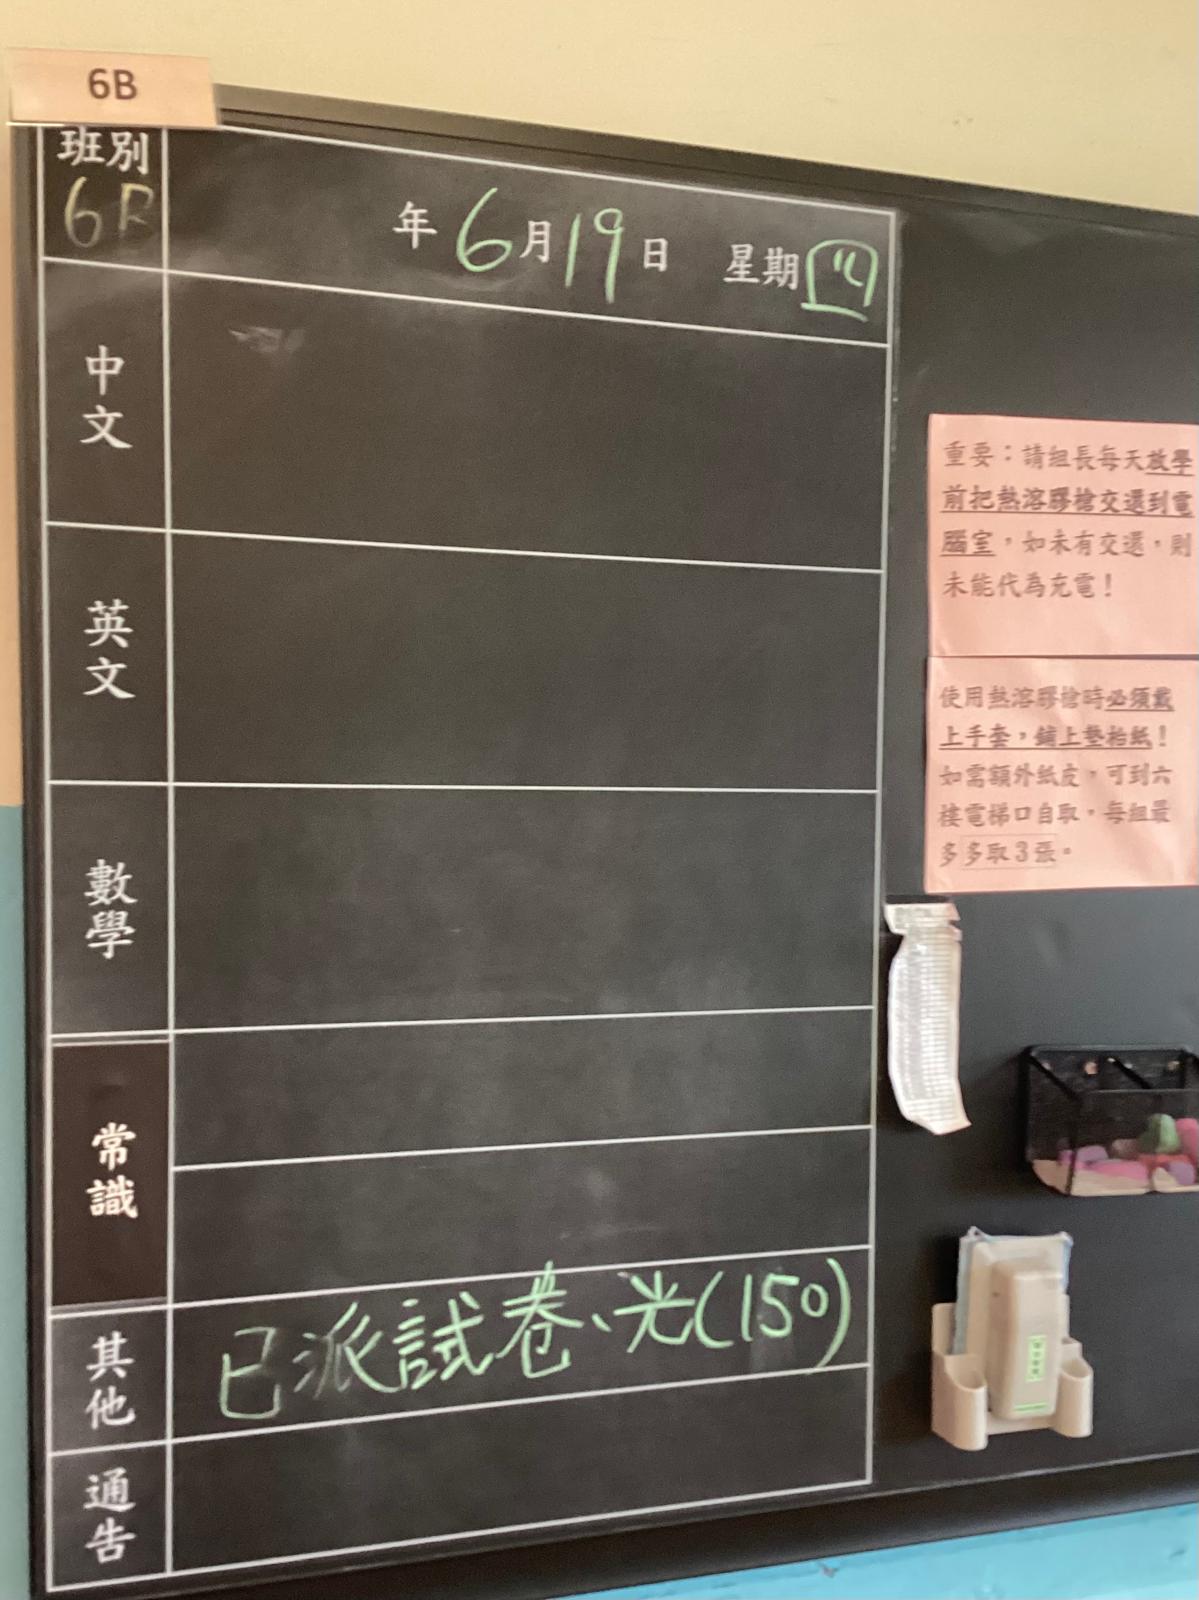 6B
班別
6B
年6月19日 星期四
中文
英文
數學
常識
其他
已派試卷、光(150)
通告
重要：請組長每天放學
前把熱溶膠槍交還到電
腦室，如未有交還，則
未能代為充電！
使用熱溶膠槍時必須戴
上手套，鋪上墊枱紙！
如需額外紙皮，可到六
樓電梯口自取，每組最
多多取3張。